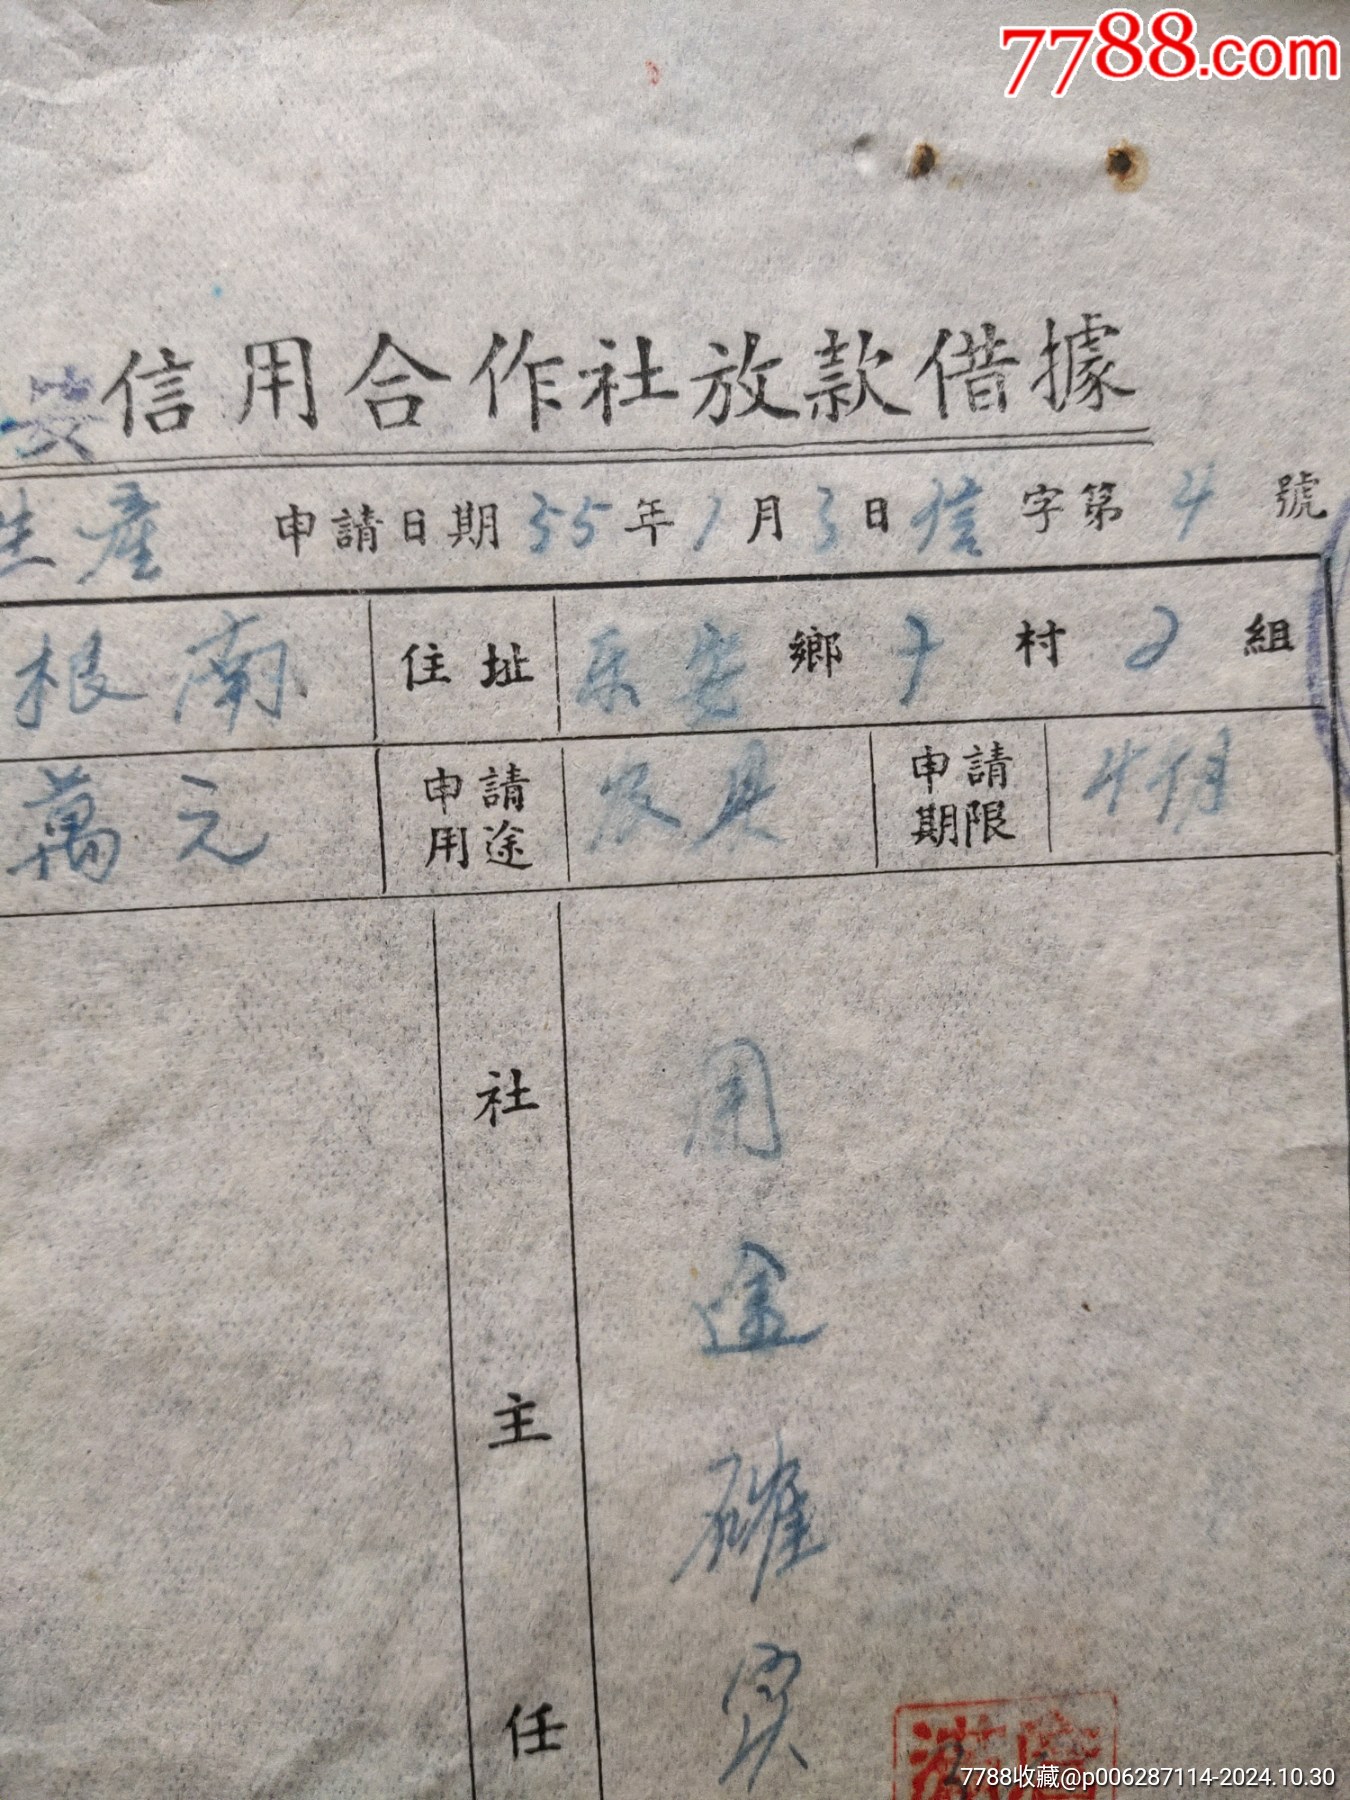 7788.com
安信用合作社放款借據
生產 申請日期 55年1月3日 信字第4號
根南 住址 乐安鄉十村2組
萬元 申請用途 农具 申請期限 4個月
社主任 用途確实
7788收藏@p006287114-2024.10.30